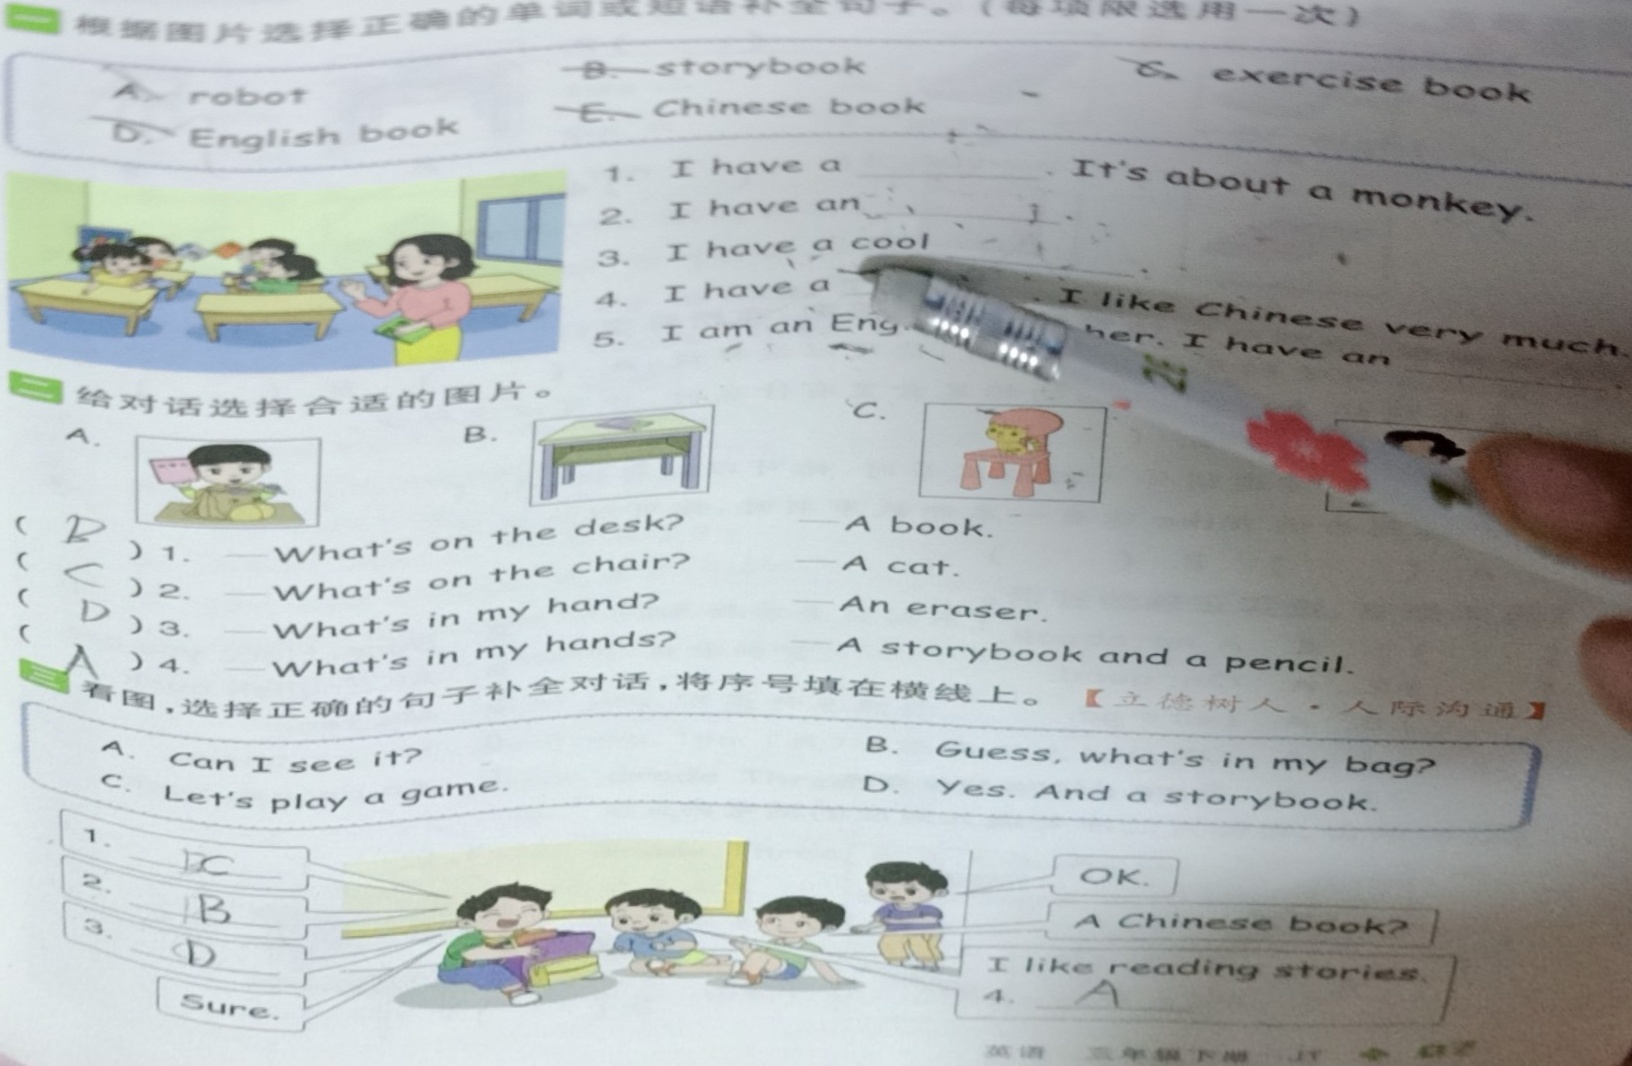 一 根据图片选择正确的单词或短语补全句子。(每项限选用一次)
A. robot B. storybook C. exercise book
D. English book E. Chinese book
1. I have a ________. It's about a monkey.
2. I have an ________.
3. I have a cool ________.
4. I have a ________. I like Chinese very much.
5. I am an Eng her. I have an ________.
二 给对话选择合适的图片。
A. B. C.
( B ) 1. —What's on the desk? —A book.
( C ) 2. —What's on the chair? —A cat.
( D ) 3. —What's in my hand? —An eraser.
( A ) 4. —What's in my hands? —A storybook and a pencil.
三 看图,选择正确的句子补全对话,将序号填在横线上。【立德树人·人际沟通】
A. Can I see it? B. Guess, what's in my bag?
C. Let's play a game. D. Yes. And a storybook.
1. C
2. B
3. D
Sure.
OK.
A Chinese book?
I like reading stories.
4. A
英语 三年级下册 JT